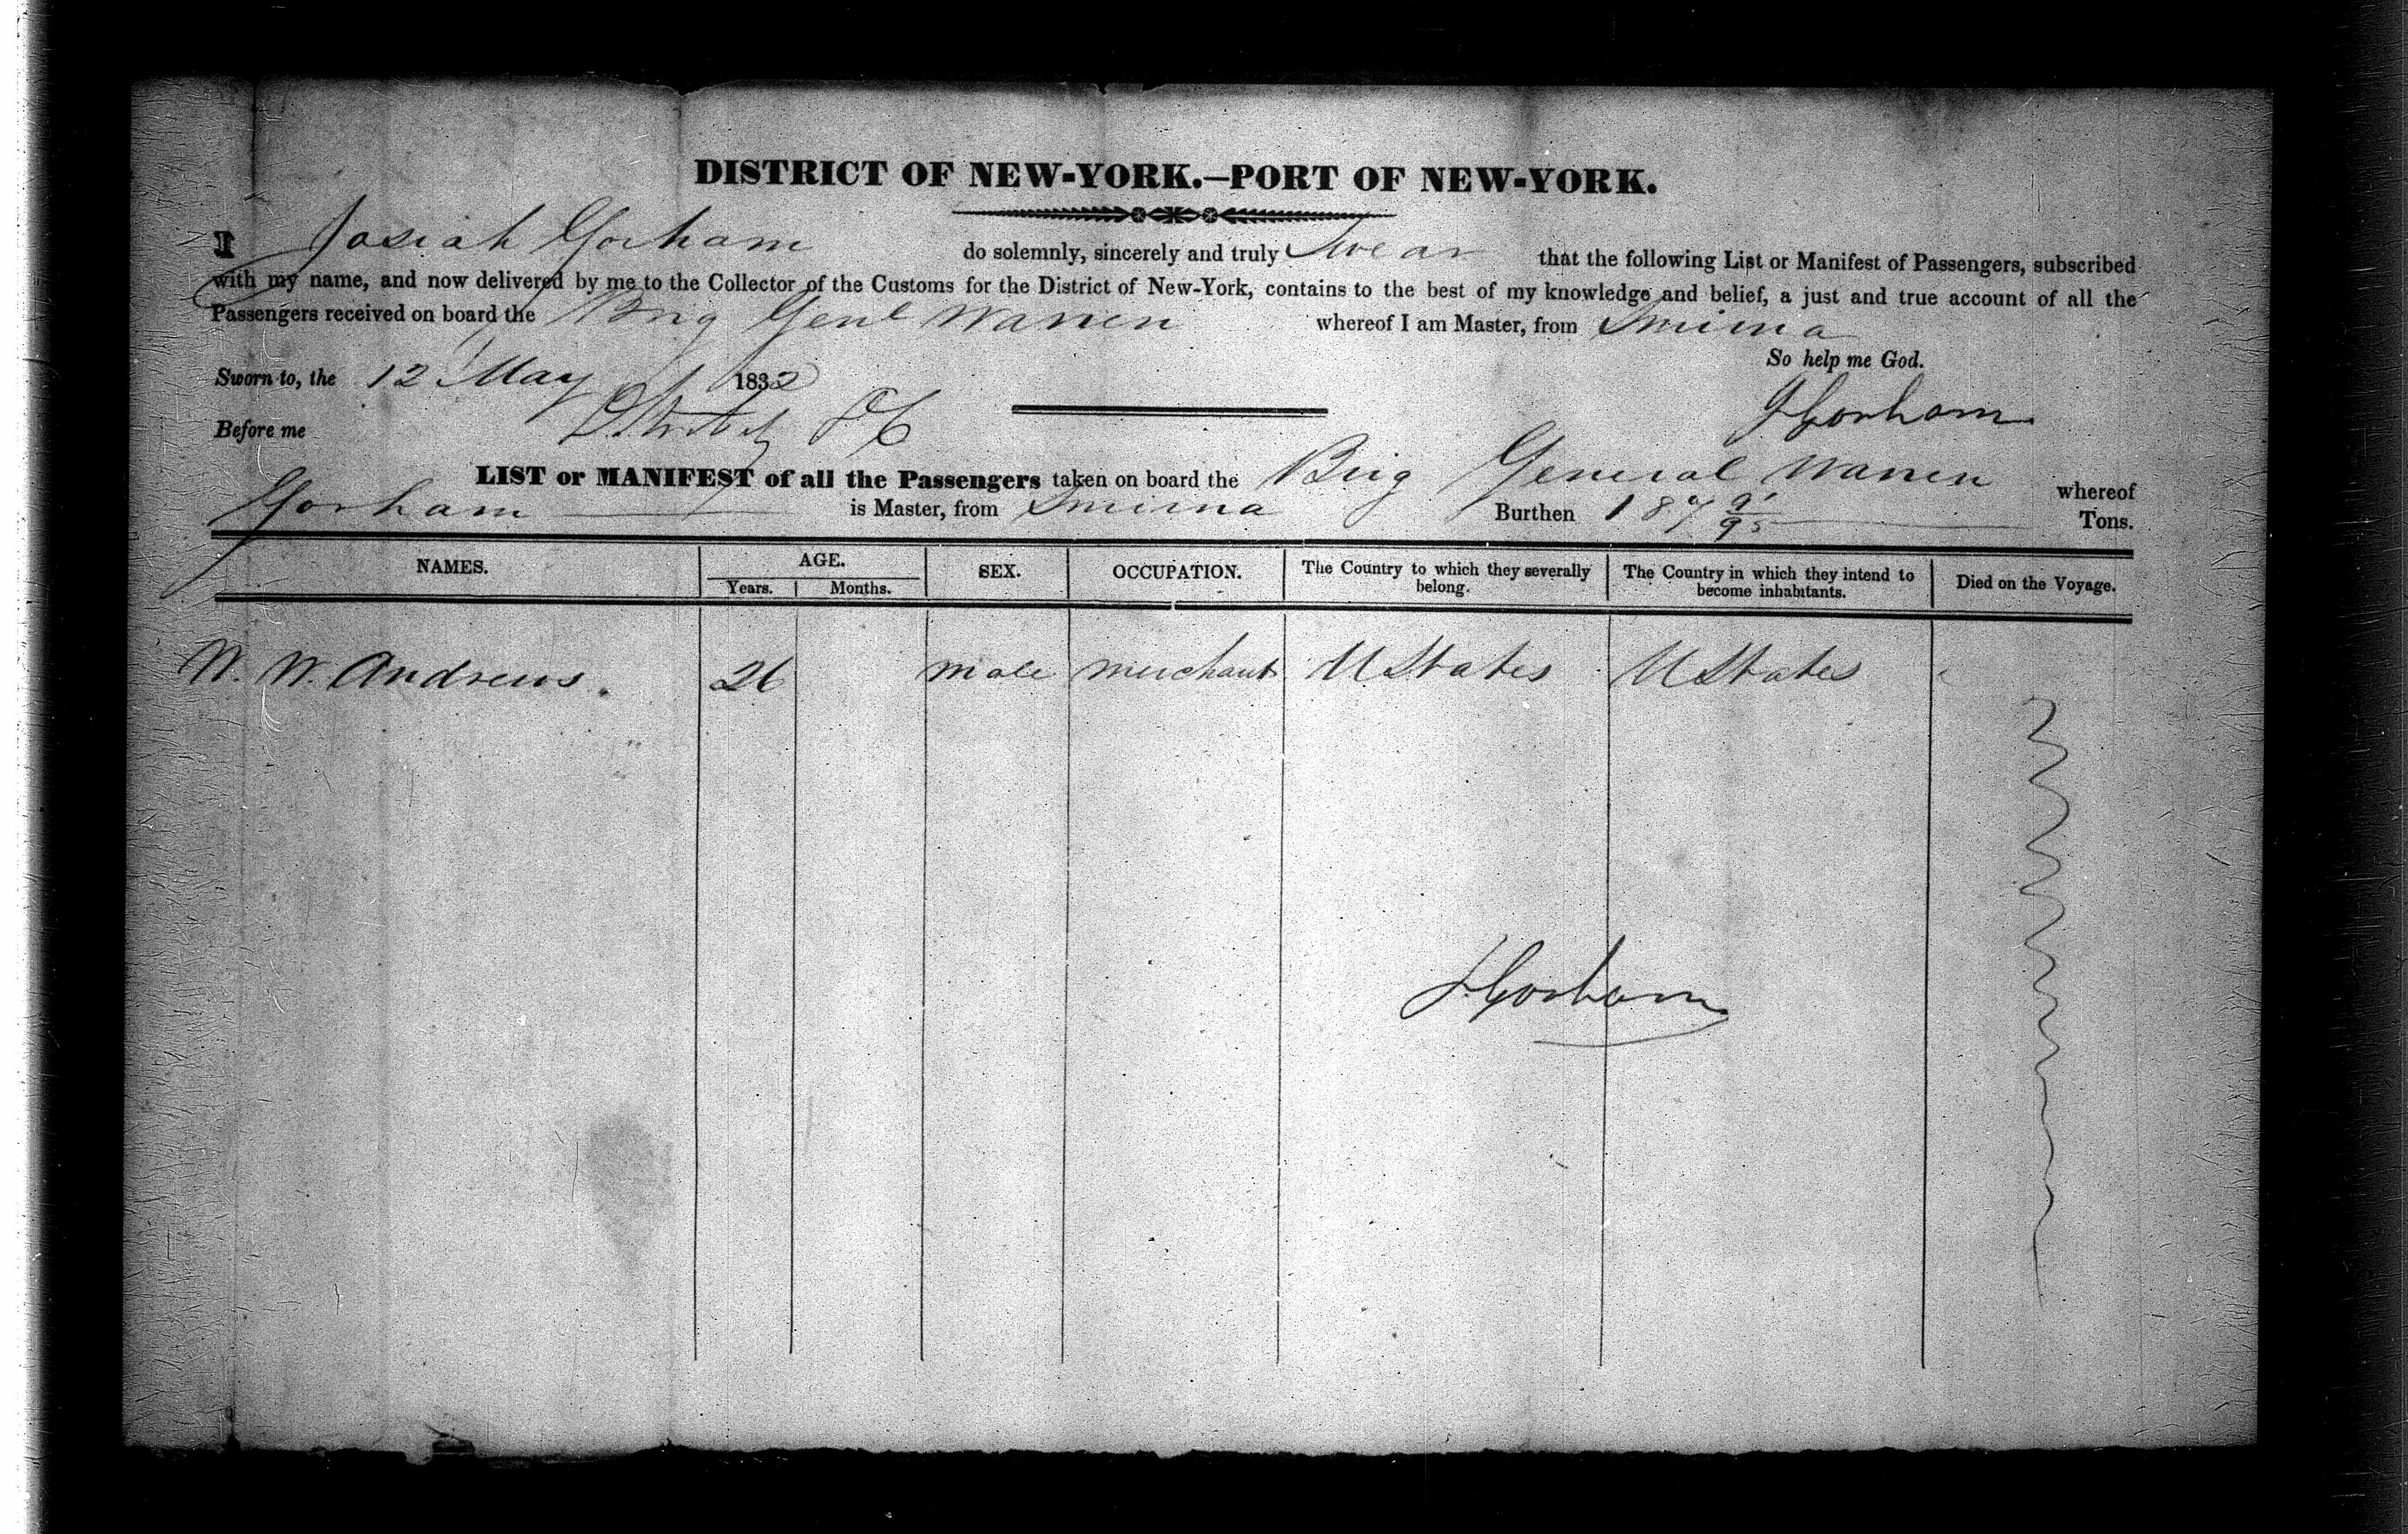 DISTRICT OF NEW-YORK.—PORT OF NEW-YORK.
I Josiah Gorham do solemnly, sincerely and truly Swear that the following List or Manifest of Passengers, subscribed
with my name, and now delivered by me to the Collector of the Customs for the District of New-York, contains to the best of my knowledge and belief, a just and true account of all the
Passengers received on board the Brig Genl Warren whereof I am Master, from Smirna
So help me God.
Sworn to, the 12 May 1832
J Gorham
Before me
LIST or MANIFEST of all the Passengers taken on board the Brig General Warren whereof
Gorham is Master, from Smirna Burthen 187 91/95 Tons.
NAMES. AGE. SEX. OCCUPATION. The Country to which they severally belong. The Country in which they intend to become inhabitants. Died on the Voyage.
Years. Months.
W. W. Andrews. 26 male merchant U States U States
J. Gorham